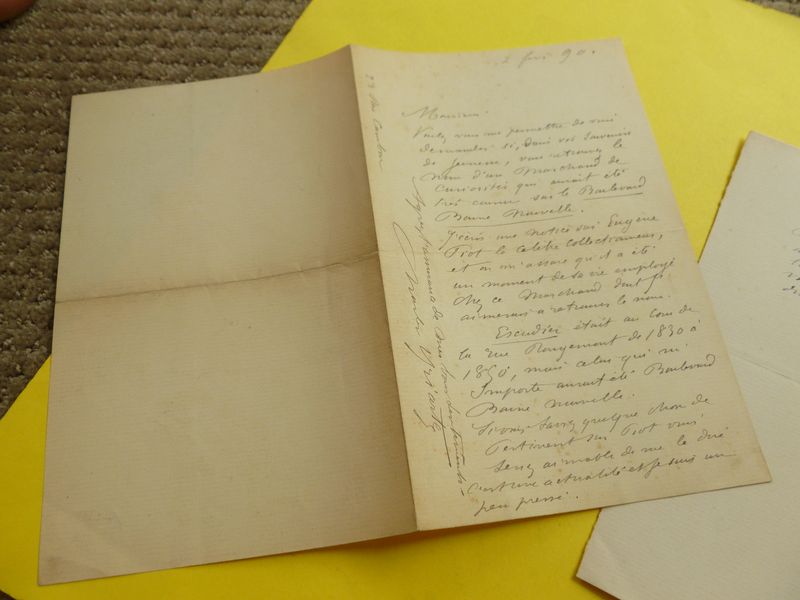 2 fév 90.
Monsieur.
Voulez vous me permettre de vous
demander si, dans vos souvenirs
de jeunesse, vous retrouvez le
nom d'un Marchand de
curiosités qui aurait été
très connu sur le Boulevard
Bonne Nouvelle.
J'écris une notice sur Eugène
Piot le célèbre collectionneur,
et on m'assure qu'il a été
un moment de sa vie employé
chez ce Marchand dont je
aimerais a retrouver le nom.
Escudier était au coin de
la rue Rougemont de 1830 à
1850, mais celui qui m'
importe aurait été Boulevard
Bonne Nouvelle.
Si vous savez quelque chose de
pertinent sur Piot vous
seriez aimable de me le dire
C'est une actualité et je suis un
peu pressé.
Agréez Monsieur de mes bons sentiments
Charles Yriarte